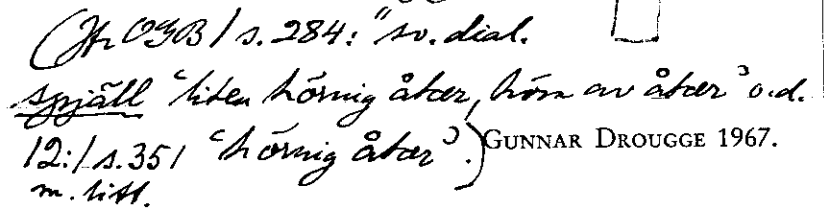 (Jfr OGB 1 s. 284: "sv. dial.
spjäll 'liten hörnig åker, hörn av åker' o.d.
12:1 s. 351 'hörnig åker'.) GUNNAR DROUGGE 1967.
m. litt.